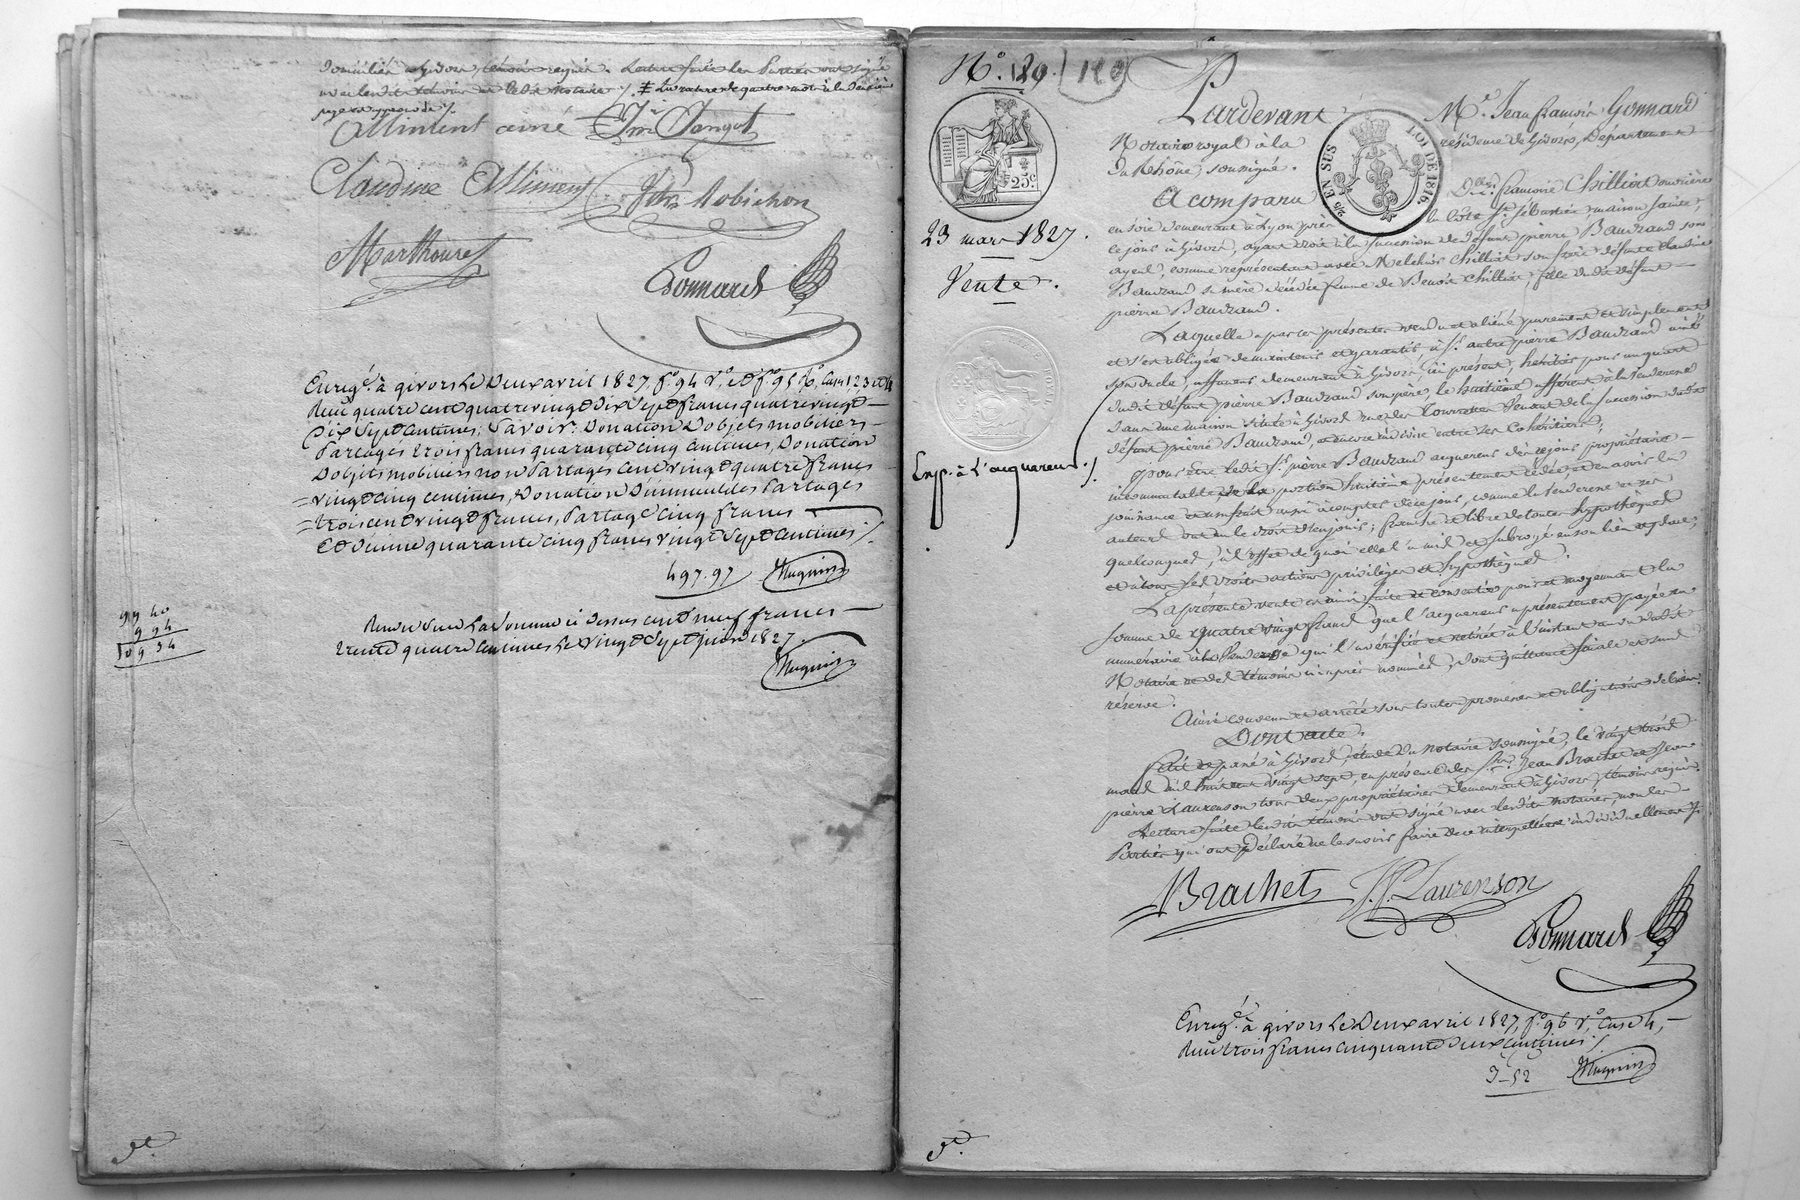 domicilié à Givors, témoin requis. Lecture faite les Parties ont signé
avec lesdits témoins et ledit Notaire ./. ≠ La rature de quatre mots à la
page est approuvée ./.
Alliment ainé
Claudine Alliment
Robichon
Marthouret
Gonnard
Enregé. à givors le Deux avril 1827, fo. 94 Vo. et fo. 95 Ro. Cases 1 2 3 et 4
Reçu quatre cent quatre vingt Dix Sept francs quatre vingt
Dix Sept centimes, Savoir, Donation D'objets mobiliers
Partagés trois francs quarante cinq centimes, Donation
D'objets mobiliers non Partagés Cent vingt quatre francs
= vingt cinq centimes, Donation D'immeubles Partagés
= trois cent vingt francs, Partage Cinq francs
Et Décime quarante cinq francs vingt Sept centimes ./.
497.97 Nuguin
99 40
9 94
109 34
Rendu sur la Somme ci Dessus cent neuf francs
trente quatre centimes le vingt Sept juin 1827.
Nuguin
No. 129. 129
25c.
2/10 EN SUS LOI DE 1816.
23 mars 1827.
Vente.
Exp. à L'acquéreur ./.
Pardevant Me. Jean françois Gonnard
Notaire royal à la résidence de Givors, Département
du Rhône, soussigné.
A comparu Dlle. françoise Chilliat ouvrière
en soie demeurant à Lyon près la Côte St. Sébastien, maison
ce jour à Givors, ayant droit à la succession de défunt pierre Baudrand son
ayeul, comme représentant avec Melchior Chilliat son frère défunte Claudine
Baudrand sa mère décédée femme de Benoit Chilliat, fille dudit défunt
pierre Baudrand.
Laquelle a par ces présentes vendu et aliéné purement et simplement
et s'est obligée de maintenir et garantir, à Sr. autre pierre Baudrand ainé
son oncle, demeurant à Givors ici présent, héritier pour un quart
dudit défunt pierre Baudrand son père, le huitième afférent à la Venderesse
dans une maison située à Givors rue des Venant de la succession dudit
défunt pierre Baudrand, encore indivise entre ses Cohéritiers;
pour être ledit Sr. pierre Baudrand acquéreur dès ce jour propriétaire
incommutable de la portion huitième présentement cédée et en avoir la
jouissance aussi à compter de ce jour, comme la Venderesse et ses
auteurs ont eu le droit d'en jouir; franche et libre de toutes hypothèques
quelconques, à l'effet de quoi elle l'a mis et subrogé en son lieu et place,
et à tous ses droits actions privilèges et hypothèques.
La présente vente est ainsi faite et consentie pour et moyennant la
somme de quatre vingt francs que l'acquéreur a présentement payée en
numéraire à la Venderesse qui l'a vérifiée et retirée à l'instant au vu dudit
Notaire et des témoins ci après nommés; dont quittance finale et sans
réserve.
Ainsi convenu et arrêté sous toutes promesses et obligations de biens.
Dont acte,
fait et passé à Givors, étude du notaire soussigné, le vingt trois
mars mil huit cent vingt sept, en présence des Srs. Jean Brachet et Jean
pierre Laurenson tous deux propriétaires demeurant à Givors, témoins requis.
Lecture faite lesdits témoins ont signé avec ledit notaire, non les
Parties qui ont déclaré ne le savoir faire de ce interpellées individuellement ./.
Brachet J. P. Laurenson
Gonnard
Enregé. à givors le Deux avril 1827, fo. 96 Vo. Case 4,
Reçu trois francs cinquante deux centimes ./.
3-52 Nuguin